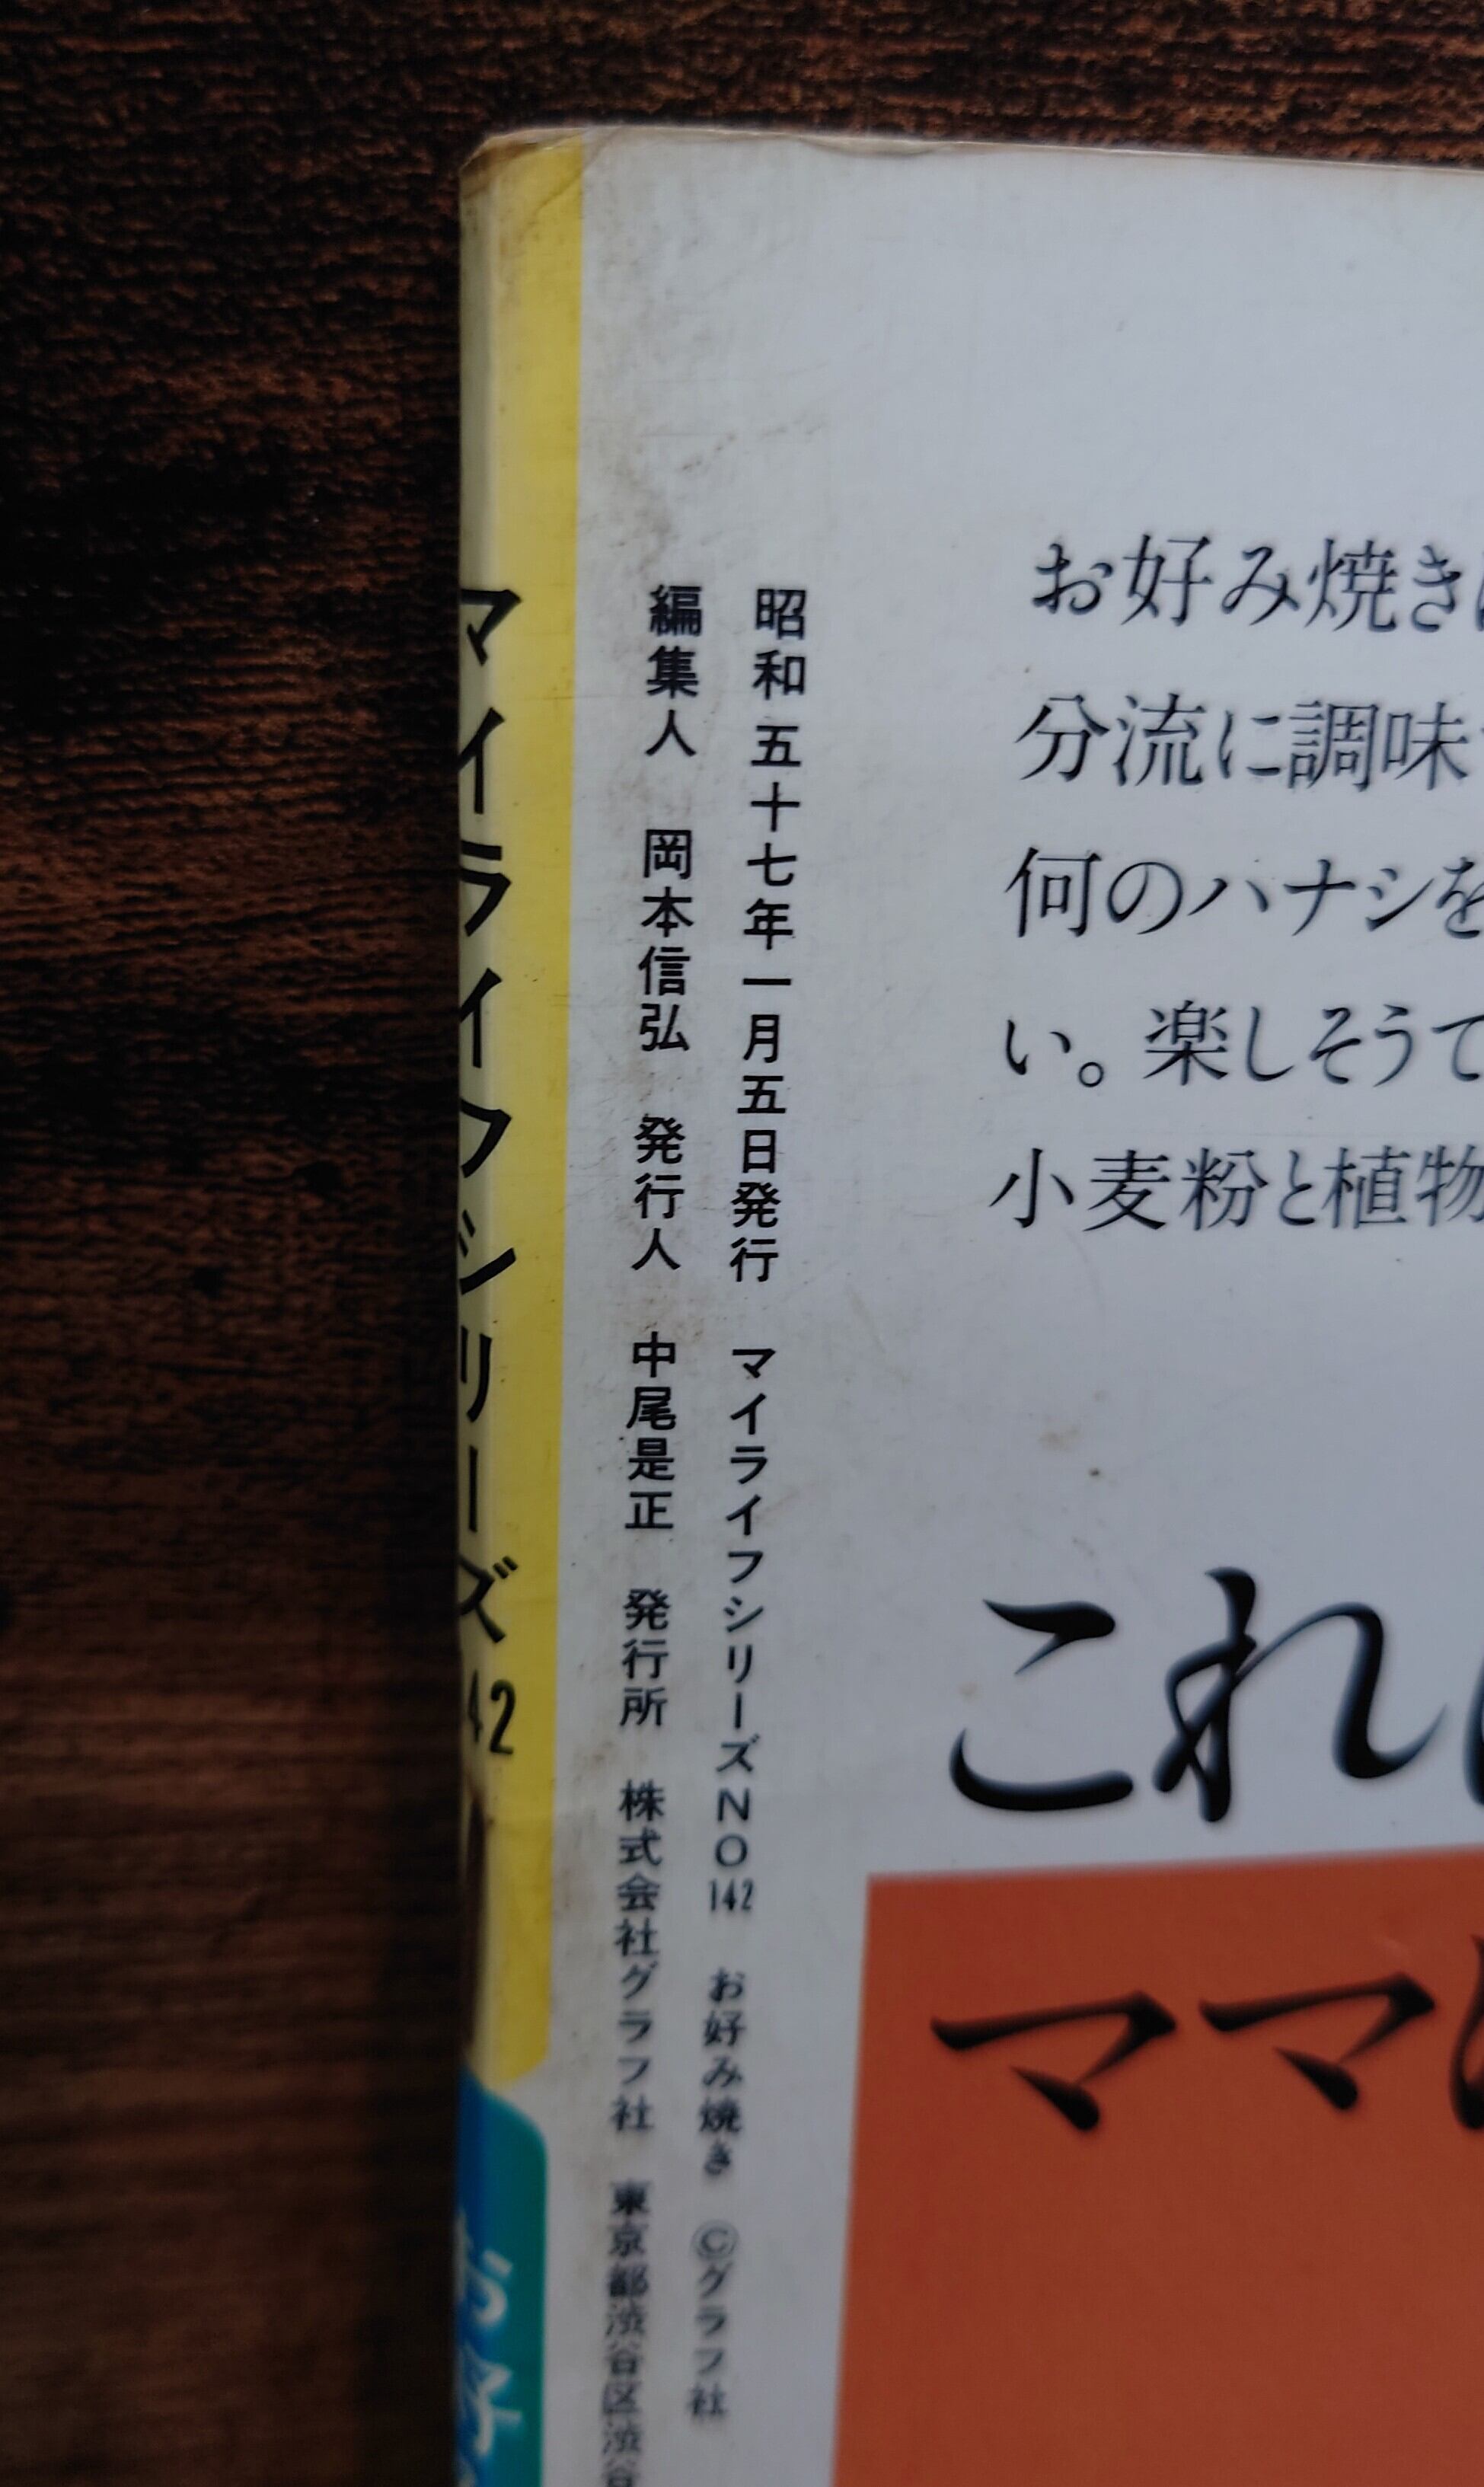 お好み焼き
分流に調味
何のハナシを
い。楽しそうて
小麦粉と植物
これ
ママ
昭和五十七年一月五日発行 マイライフシリーズNO142 お好み焼き ©グラフ社
編集人 岡本信弘 発行人 中尾是正 発行所 株式会社グラフ社 東京都渋谷区渋谷
マイライフシリーズ 42
お好